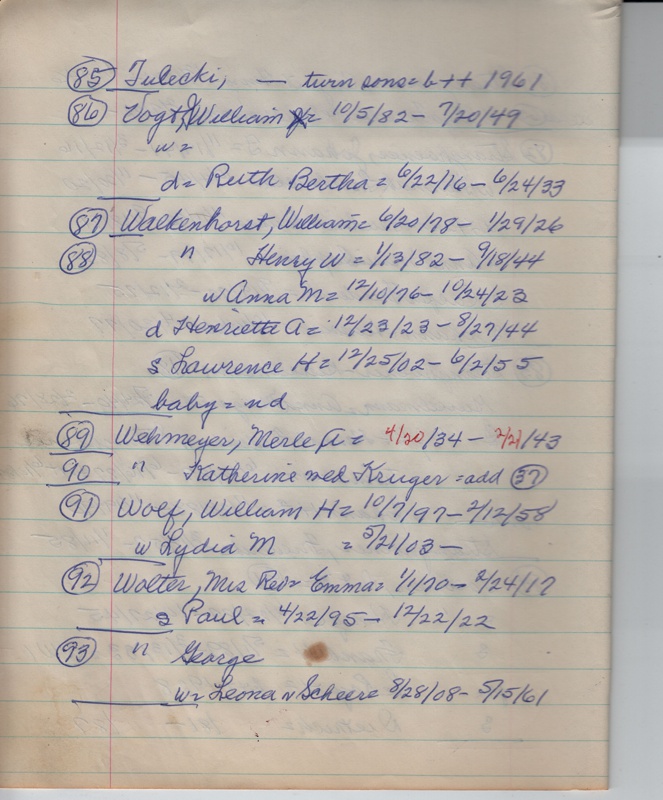 85 Tulecki, — turn sons = b++ 1961
86 Vogt, William J = 10/5/82 – 7/20/49
w =
d = Ruth Bertha = 6/22/16 – 6/24/33
87 Walkenhorst, William = 6/20/78 – 1/29/26
88 " Henry W = 1/13/82 – 9/18/44
w Anna M = 12/10/76 – 10/24/23
d Henrietta A = 12/23/23 – 8/27/44
s Lawrence H = 12/25/02 – 6/2/55
baby = nd
89 Wehmeyer, Merle A = 4/20/34 – 2/21/43
90 " Katherine ned Kruger = add 37
91 Wolf, William H = 10/7/97 – 2/12/58
w Lydia M = 5/21/03 –
92 Wolter, Mrs Rev = Emma = 1/1/70 – 2/24/17
s Paul = 4/22/95 – 12/22/22
93 " George
w = Leona v Scheere 8/28/08 – 5/15/61